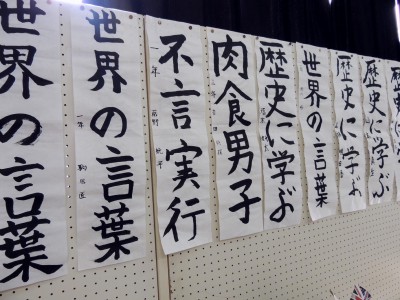 世界の言葉
世界の言葉
一年
不言実行
一年
肉食男子
歴史に学ぶ
世界の言葉
歴史に学ぶ
歴史に学ぶ